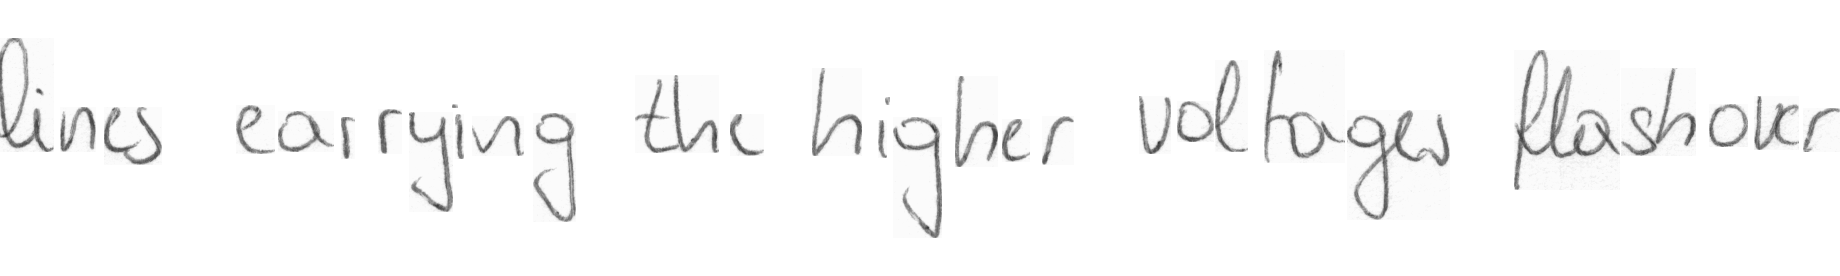 lines carrying the higher voltages flashover